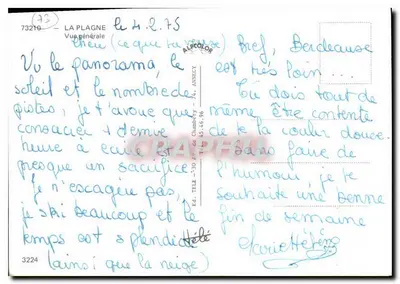 (73)
73210 - LA PLAGNE
Vue générale
le 4.2.75
(ce que tu veux)
Vu le panorama, le
soleil et le nombre de
pistes, je t'avoue que
consacrer 1 demie
heure à écrire est
presque un sacrifice
Je n'exagère pas,
je ski beaucoup et le
temps est splendide
(ainsi que la neige)
3224
ALPCOLOR
Bref, Bordeaux
est très loin...
Tu dois tout de
même être contente
de te la couler douce.
sans faire de
l'humour, je te
souhaite une bonne
fin de semaine
Hélé
Marie Hélène